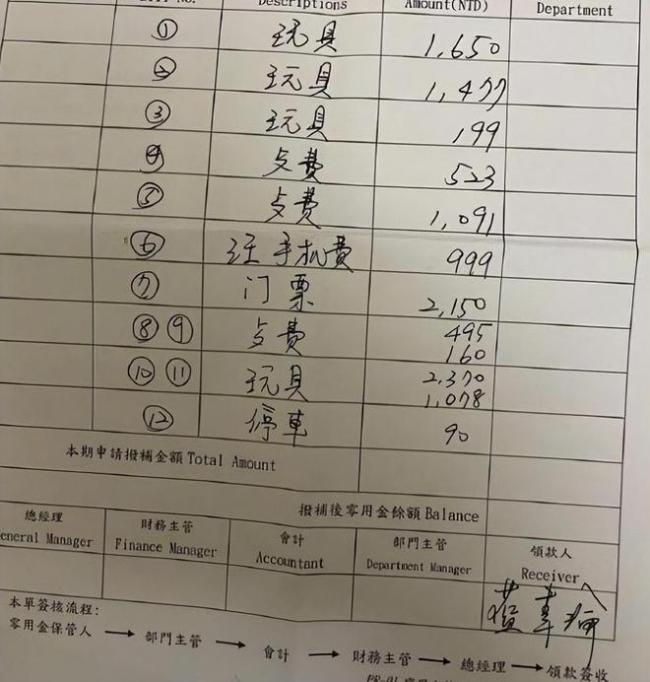 Descriptions Amount(NTD) Department
① 玩具 1,650
② 玩具 1,477
③ 玩具 199
④ 1,523
⑤ 1,091
⑥ 手机費 999
⑦ 门票 2,150
⑧ ⑨ 495
160
⑩ ⑪ 玩具 2,370
1,078
⑫ 停車 90
本期申請撥補金額 Total Amount
撥補後零用金餘額 Balance
總經理 財務主管 會計 部門主管 領款人
General Manager Finance Manager Accountant Department Manager Receiver
本單簽核流程:
零用金保管人 → 部門主管 → 會計 → 財務主管 → 總經理 → 領款簽收